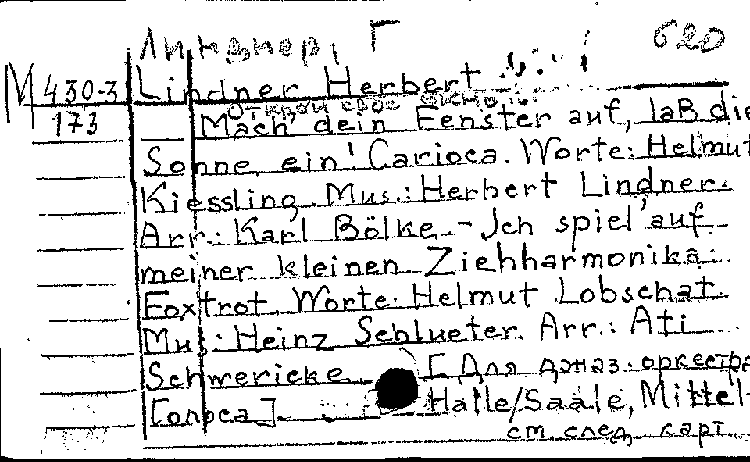 Линднер, Г 620
М 430-3 Lindner Herbert
Открой свое окно
173 Mach dein Fenster auf, laß die
Sonne ein! Carioca. Worte: Helmut
Kiessling. Mus.: Herbert Lindner.
Arr.: Karl Bölke. - Ich spiel auf
meiner kleinen Ziehharmonika.
Foxtrot. Worte: Helmut Lobschat.
Mus: Heinz Schlueter. Arr.: Ati
Schmericke. [Для джаз. оркестра
[опреа] Halle/Saale, Mittel-
см. след. карт.